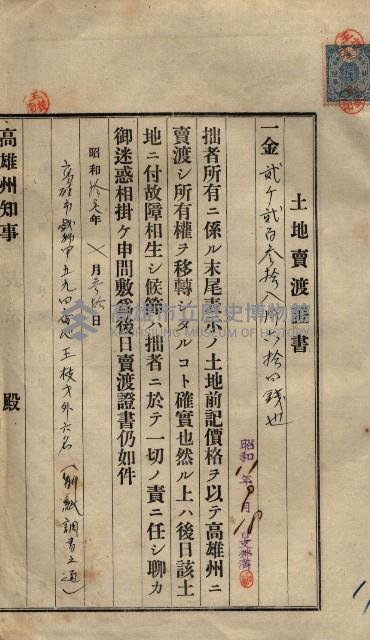 土地賣渡證書
一金貳千貳百參拾八円六拾四錢也
拙者所有ニ係ル末尾表示ノ土地前記價格ヲ以テ高雄州ニ
賣渡シ所有權ヲ移轉シタルコト確實也然ル上ハ後日該土
地ニ付故障相生シ候節ハ拙者ニ於テ一切ノ責ニ任シ聊カ
御迷惑相掛ケ申間敷爲後日賣渡證書仍如件
昭和拾 年 月參拾日
高雄市 甲五九四番地 王枝 外六名(別紙調書之通)
高雄州知事 殿
昭和11年9月18日支拂濟
高雄市立歷史博物館